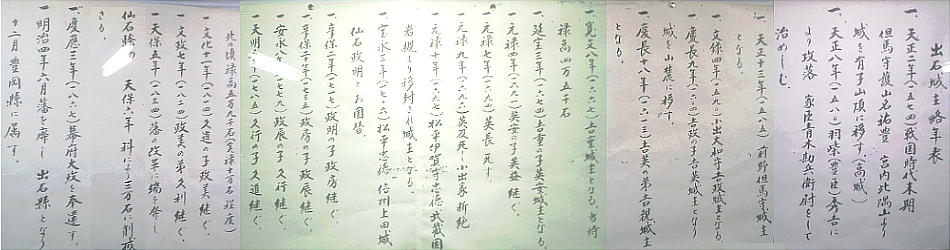 出石城主略年表
一、天正二年(一五七四)戦国時代末期
但馬守護山名祐豊 宮内此隅山より
城を有子山頂に移す(高城)
一、天正八年(一五八〇)羽柴(豊臣)秀吉に
より攻落 家臣青木勘兵衛尉をして
治めしむ。
一 天正十三年(一五八五)前野但馬守城主
となる
一 文禄四年(一五九五)小出大和守吉政城主となる
一 慶長九年(一六〇四)吉政の子吉英城主となり
城を山麓に移す
一 慶長十八年(一六一三)吉英の弟吉親城主
となる。
一、寛文八年(一六六八)吉重城主となる、当時
禄高四万五千石
一 延宝二年(一六七四)吉重の子英安城主となる。
一 元禄四年(一六九一)英安の子英益継ぐ
一 元禄五年(一六九二)英長死す
一 元禄九年(一六九六)英及死し小出家断絶
一 元禄十年(一六九七)松平伊賀守忠徳武蔵国
岩槻より移封され城主となる。
一 宝永三年(一七〇六)松平忠徳 信州上田城
仙石政明とお国替
一 享保二年(一七一七)政明の子政房継ぐ
一、享保二十年(一七三五)政房の子政辰継ぐ。
一 安永八年(一七七九)政辰の子久行継ぐ。
一 天明五年(一七八五)久行の子久道継ぐ。
此の頃禄高五万九千石(実禄十万石程度)
一 文化十一年(一八一四)久道の子政美継ぐ。
一 文政七年(一八二四)政美の弟久利継ぐ
一 天保五年(一八三四)藩の改革に端を発し
仙石騒の 天保六年 科により三万石に削減
さる。
一、慶應三年(一八六七)幕府大政を奉還す。
一 明治四年六月藩を廃し 出石県となり
十二月豊岡縣に属す。